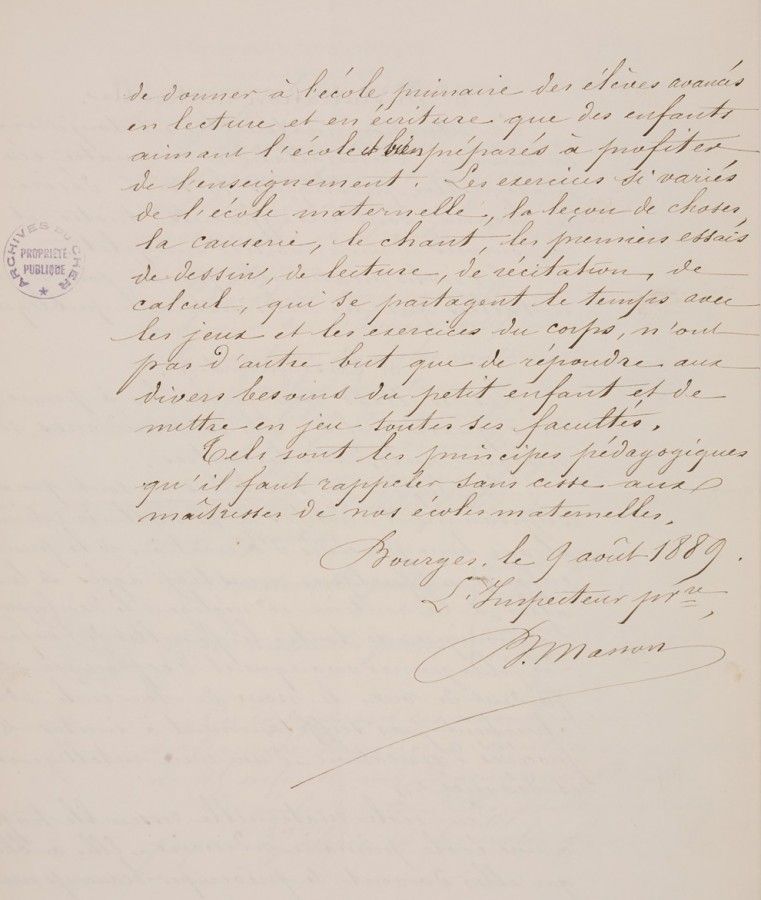 de donner à l'école primaire des élèves avancés
en lecture et en écriture que des enfants
aimant l'école et bien préparés à profiter
de l'enseignement. Les exercices si variés
de l'école maternelle, la leçon de choses,
la causerie, le chant, les premiers essais
de dessin, de lecture, de récitation, de
calcul, qui se partagent le temps avec
les jeux et les exercices du corps, n'ont
pas d'autre but que de répondre aux
divers besoins du petit enfant et de
mettre en jeu toutes ses facultés.
Tels sont les principes pédagogiques
qu'il faut rappeler sans cesse aux
maîtresses de nos écoles maternelles.
Bourges, le 9 août 1889.
L'Inspecteur prre,
Manon
ARCHIVES DU CHER
PROPRIÉTÉ
PUBLIQUE